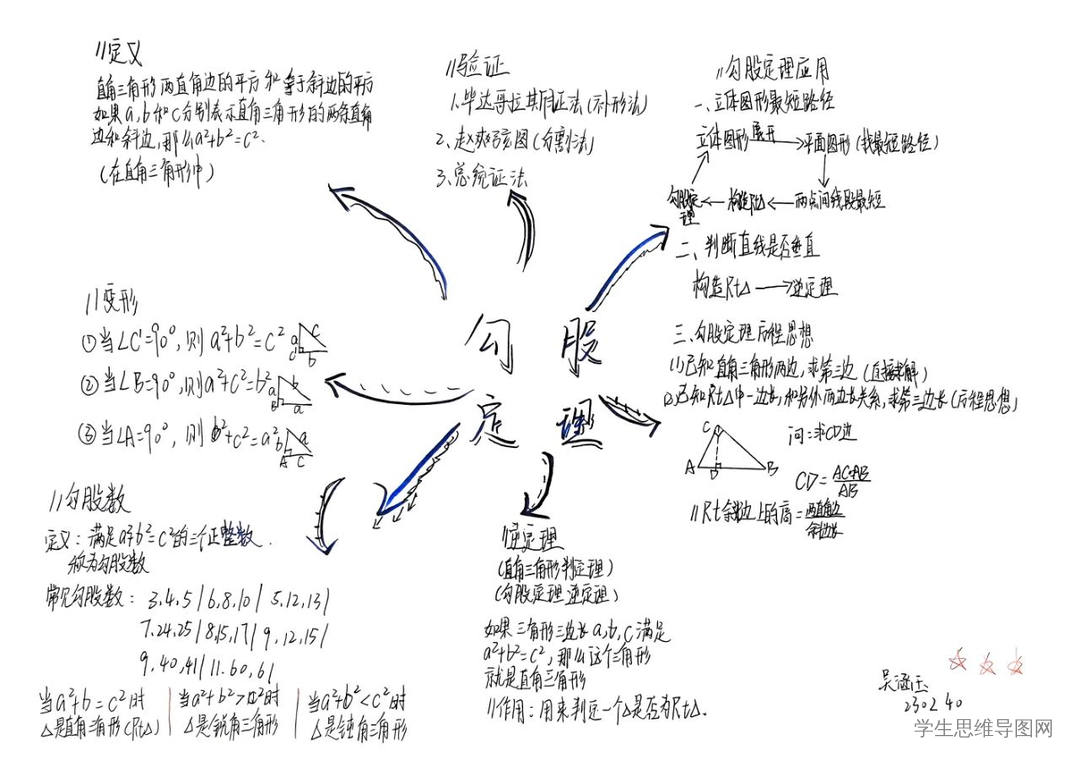 //定义
直角三角形两直角边的平方和等于斜边的平方
如果a,b和c分别表示直角三角形的两条直角
边和斜边,那么a²+b²=c².
(在直角三角形中)
//验证
1.毕达哥拉斯证法(补形法)
2、赵爽弦图(分割法)
3.总统证法
//勾股定理应用
一、立体图形最短路径
立体图形 展开 → 平面图形(找最短路径)
勾股定理 ← 构造Rt△ ← 两点间线段最短
二、判断直线是否垂直
构造Rt△ → 逆定理
三、勾股定理方程思想
(1)已知直角三角形两边,求第三边(直接求解)
(2)已知Rt△中一边长,和另外两边长关系,求第三边长(方程思想)
C
A D B
问:求CD边
CD=AC·AB/AB
//Rt斜边上的高=两直角边/斜边长
勾 股
定 理
//变形
①当∠C=90°,则a²+b²=c² a c C b
②当∠B=90°,则a²+c²=b² a b B a
③当∠A=90°,则b²+c²=a² b a A c
//勾股数
定义:满足a²+b²=c²的三个正整数.
称为勾股数
常见勾股数:3,4,5/6,8,10/ 5,12,13/
7,24,25/8,15,17/9,12,15/
9,40,41/11,60,61
当a²+b=c²时
△是直角三角形(Rt△)
当a²+b²>c²时
△是锐角三角形
当a²+b²<c²时
△是钝角三角形
//逆定理
(直角三角形判定理)
(勾股定理逆定理)
如果三角形三边长a,b,c满足
a²+b²=c²,那么这个三角形
就是直角三角形
//作用:用来判定一个△是否为Rt△.
230240
学生思维导图网